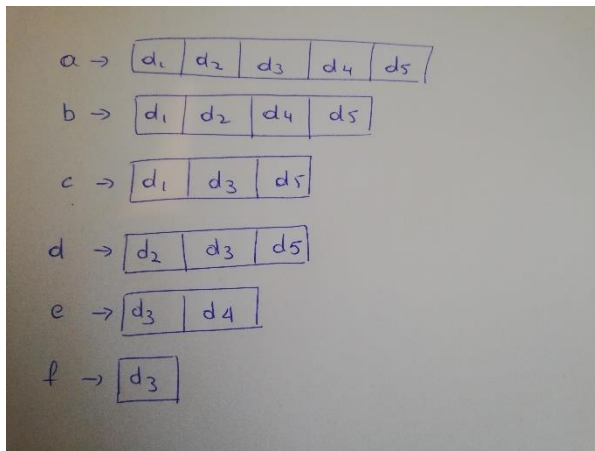 a → d1 d2 d3 d4 d5
b → d1 d2 d4 d5
c → d1 d3 d5
d → d2 d3 d5
e → d3 d4
f → d3